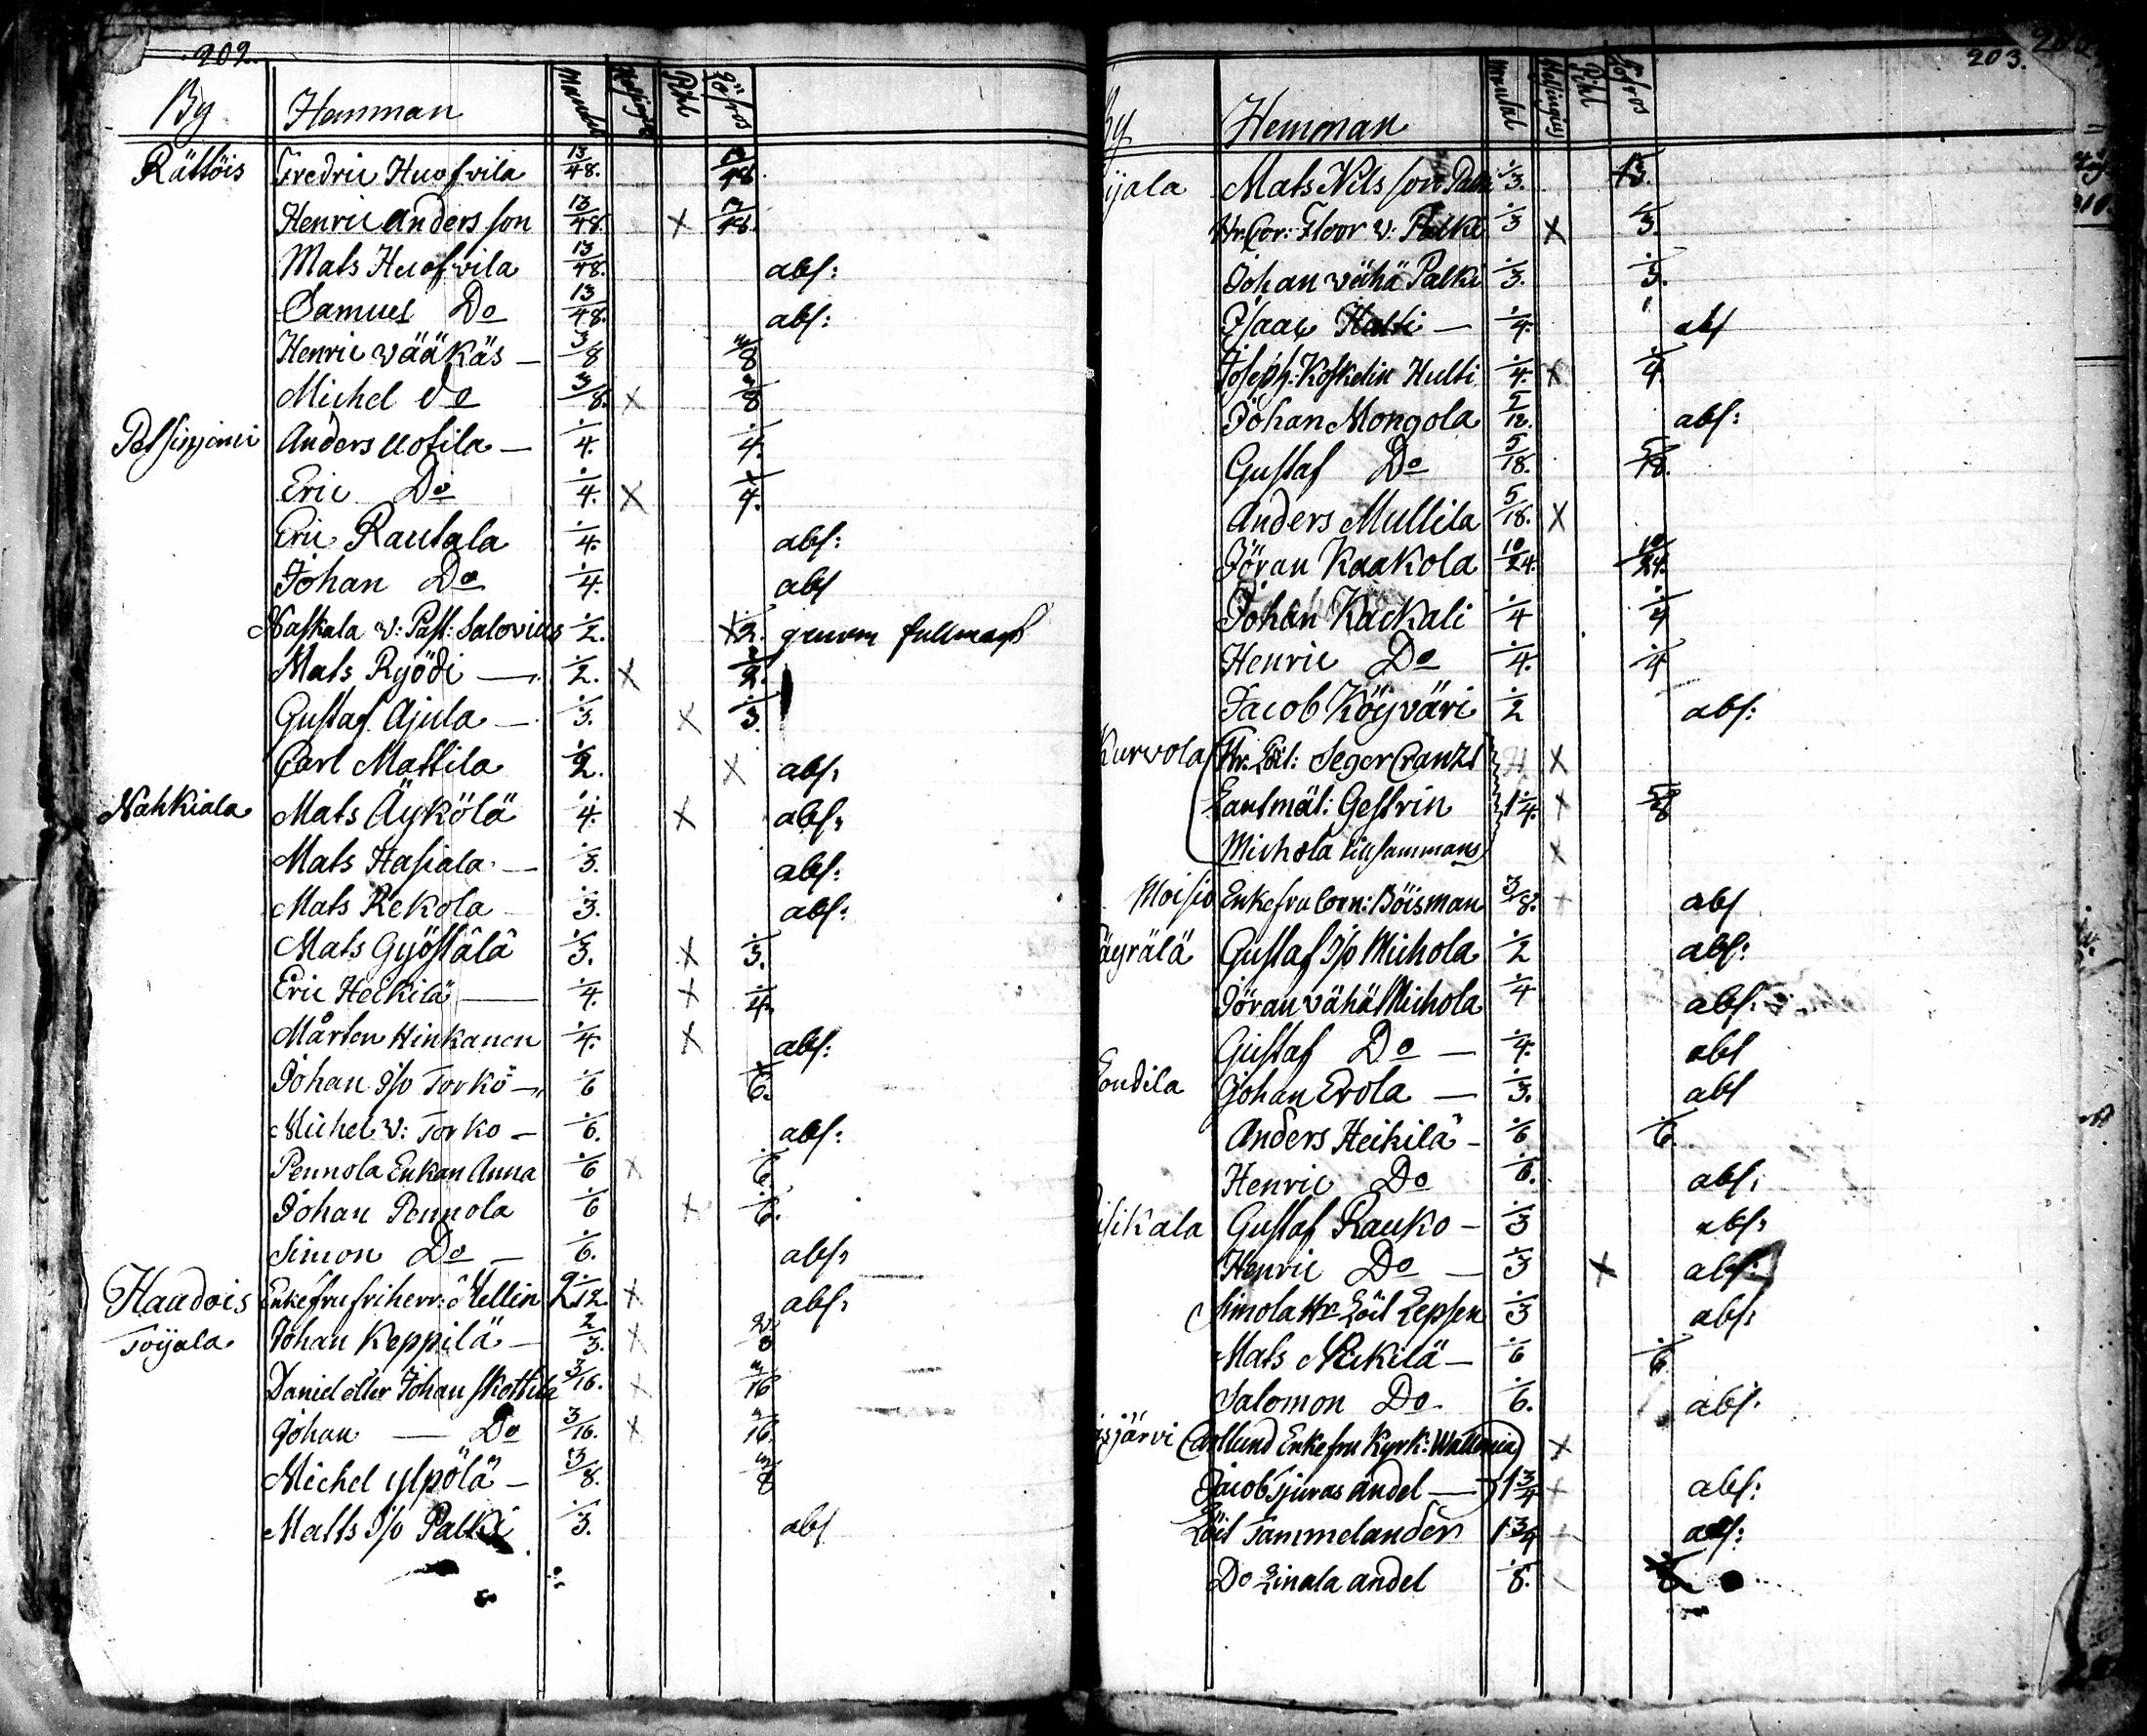 202.
By Hemman Mantal Hellingius Pihl Löfros
Rättöis Fredric Huofvila 13/48. 13/48
Henric Andersson 13/48. X 13/48.
Mats Huofvila 13/48. abs:
Samuel Do 13/48. abs:
Henric Wääkäs — 3/8 3/8
Michel do 3/8. X 3/8
Anders Uotila — 1/4. 1/4.
Eric Do 1/4. X 1/4.
Eric Rautala 1/4. abs:
Johan Do 1/4. abs
Naskala v: Past: Salovius 1/2. 1/2. fullmagt
Mats Ryödi — 1/2. X 1/2.
Gustaf Ajula — 1/3. X 1/3.
Carl Mattila 1/2. X abs:
Nahkiala Mats Äykölä 1/4. X abs:
Mats Hasiala — 1/3. abs:
Mats Rekola 1/3. abs:
Mats Gyöstälä 1/3. X 1/3.
Eric Heikilä — 1/4. X 1/4.
Mårten Hinkanen 1/4. X abs:
Johan I/o Torkö — 1/6 1/6.
Michel v: Torko — 1/6. abs:
Pennola Enkan Anna 1/6 X 1/6.
Johan Pennola 1/6 X 1/6.
Simon Do — 1/6. abs:
Haudois Enkefru friherr: Mellin X abs:
Toijala Johan Keppilä — 2/3. X 2/3
Daniel eller Johan Skottila 3/16. X 3/16
Johan — Do 3/16. X 3/16.
Michel Ylpölä — 3/8. 3/8
Matts I/o Palki 1/3. abs
203.
By Hemman Mantal Hellingius Pihl Löfros
ijala Mats Nilsson Palki 1/3. 1/3.
Hr: Cor: Floor v: Palki 1/3 X 1/3.
Johan vähä Palki 1/3. 1/3.
Isaac Hulti — 1/4. abs
Joseph: Koskelin Hulti 1/4. X 1/4
Johan Mongola 5/12. abs:
Gustaf Do 5/18. 5/18.
Anders Mullila 5/18. X
Jöran Kaakola 10/24. 10/24.
Johan Kackali 1/4 1/4
Henric Do 1/4. 1/4
Jacob Köyväri 1/2 abs:
Kurvola Hr: Löit: Segercrantz X
Lantmät: Gestrin 1 1/4. X 5/8
Michola tillsammans X
Moisio Enkefru Corn: Böisman 3/8. X abs
äyrälä Gustaf I/o Michola 1/2 abs:
Jöran vähä Michola 1/4 abs:
Gustaf Do — 1/4. abs
oudila Johan Erola — 1/3. abs
Anders Heikilä — 1/6 1/6
Henric Do 1/6. abs:
isikala Gustaf Rauko — 1/3 abs:
Henric Do — 1/3 X abs:
Simola Hr Löit Lepsen 1/3 abs:
Mats Mikilä — 1/6 1/6.
Salomon Do 1/6. abs:
isjärvi Carllund Enkefru Kyrk: Wallenia X
Jacob Tjuras andel — 1 3/4 X abs:
Löit Tammelander 1 3/4 X abs:
Do Linala andel 1/8.